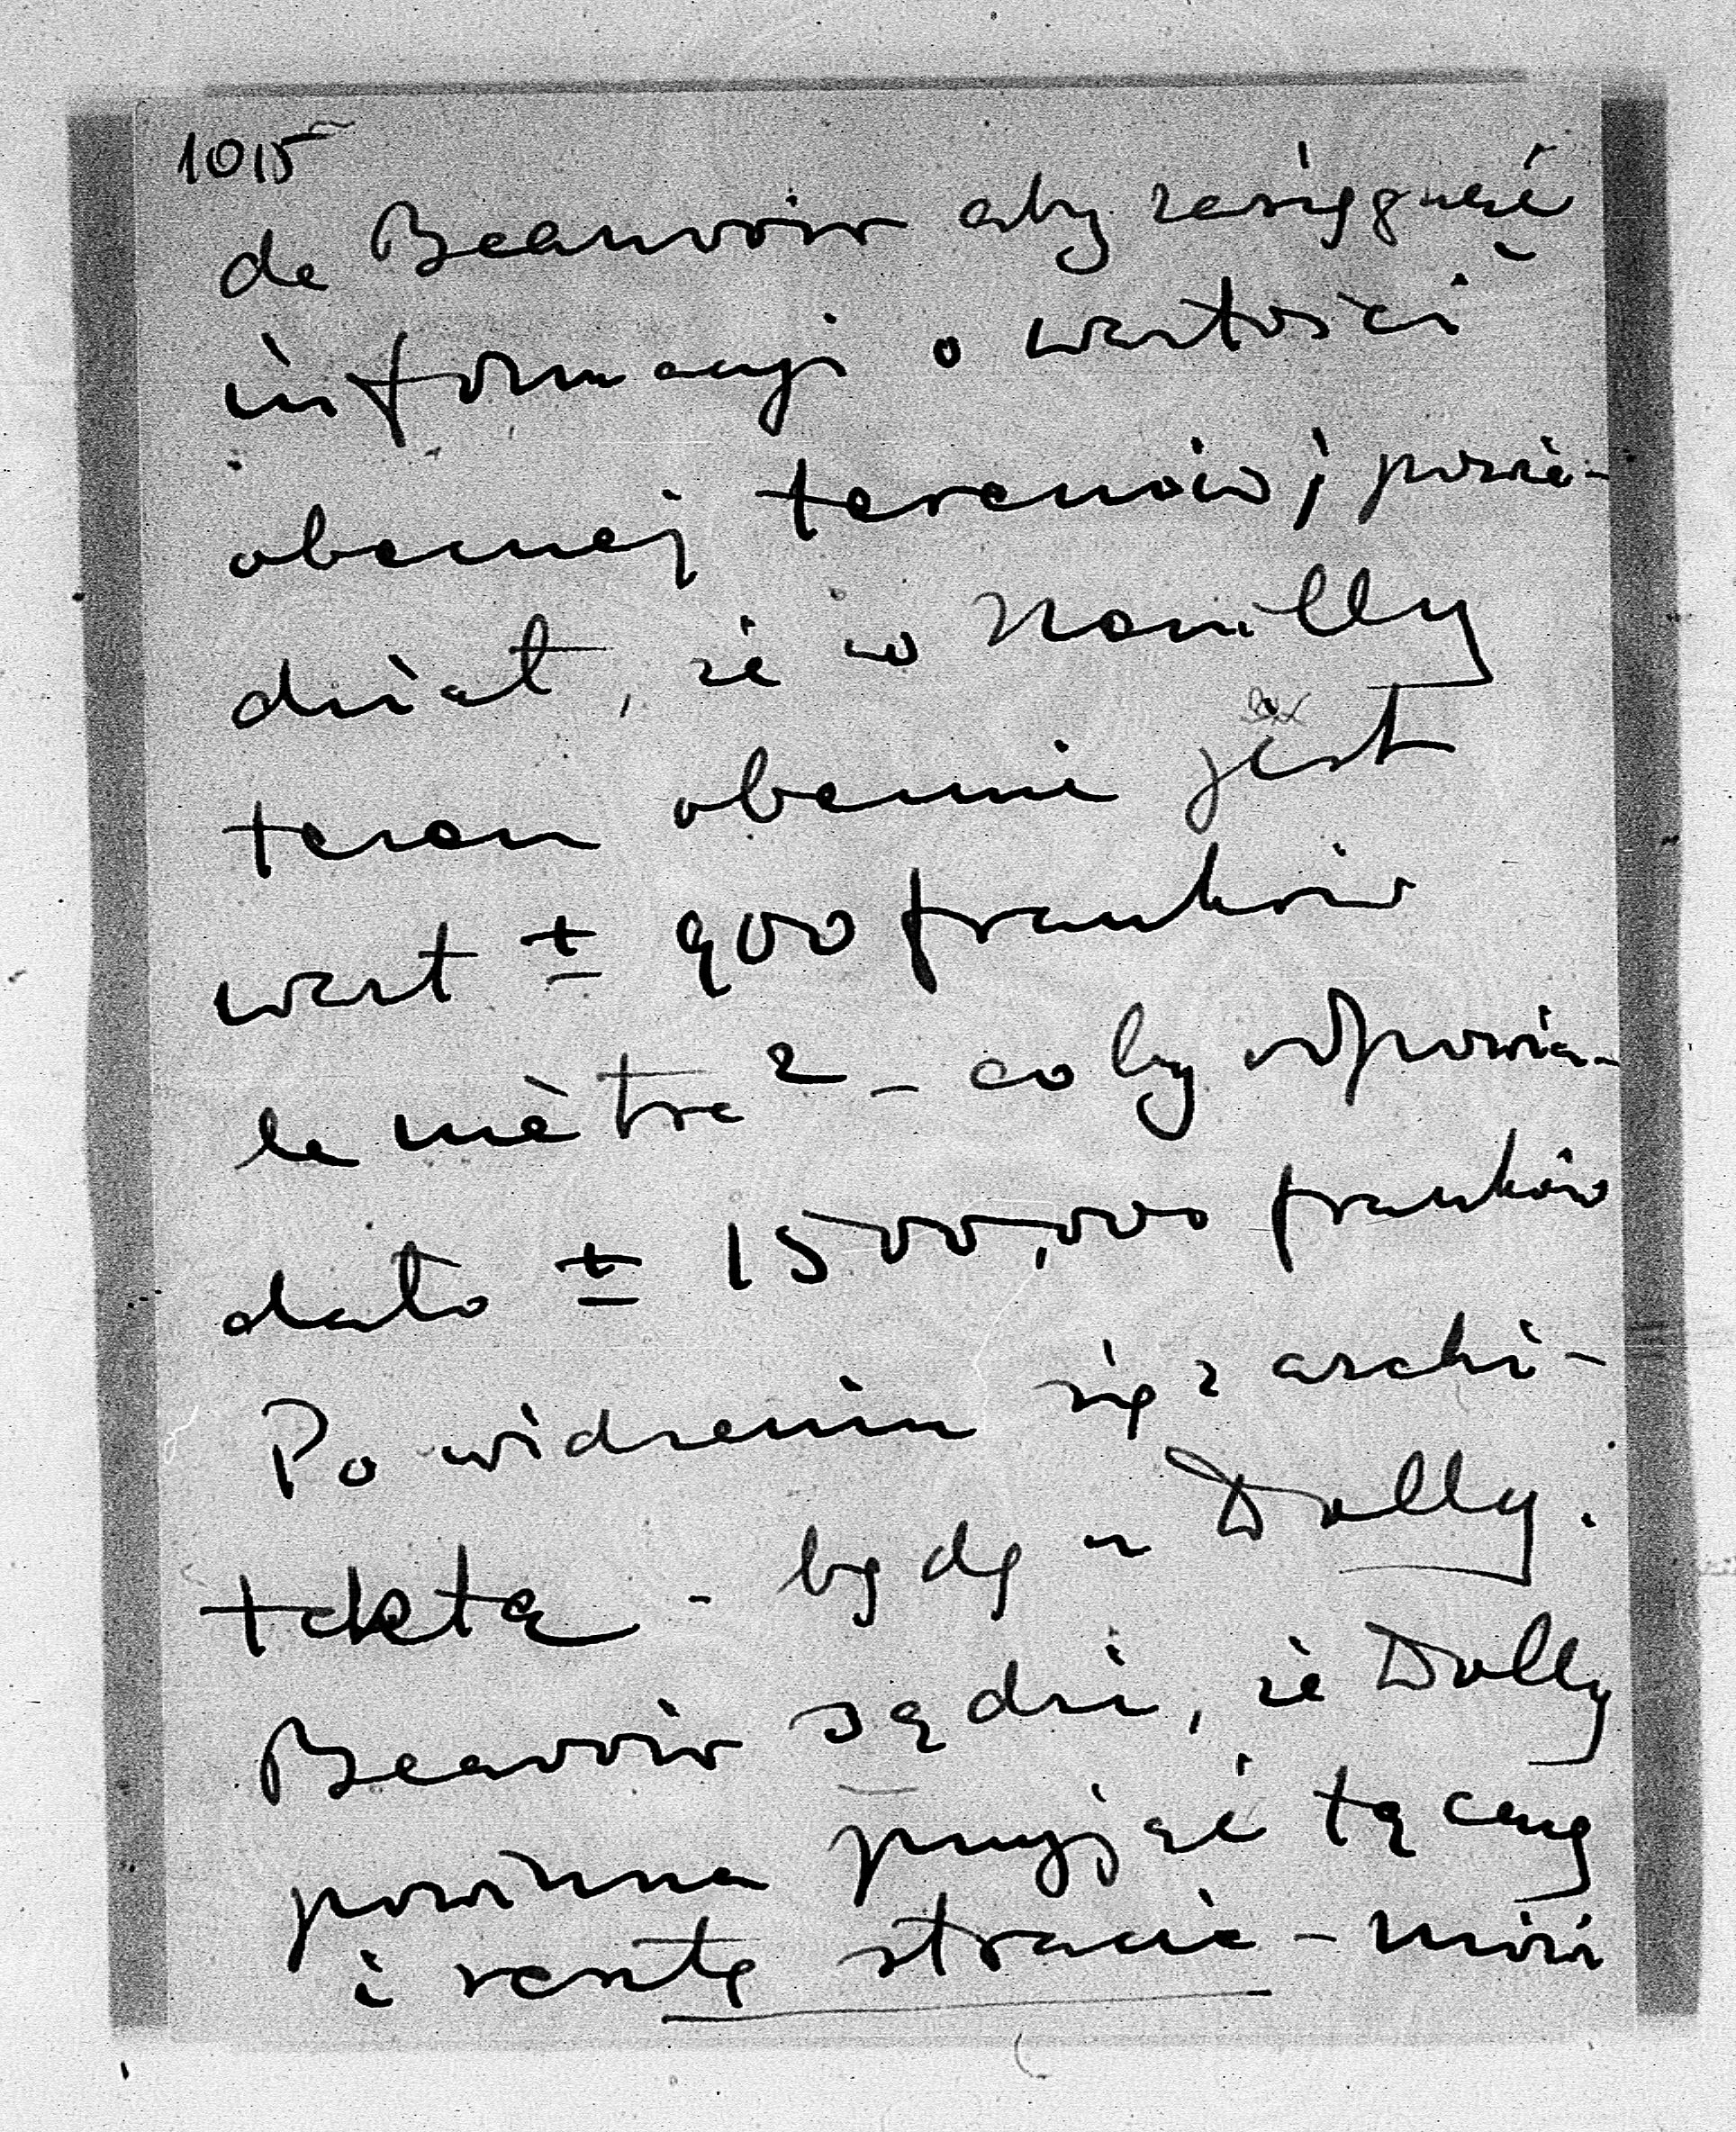 1015
de Beauvoir aby zasięgnąć
informacyi o wartości
obecnej terenów; powie-
dział, że w Neuilly
teren obecnie jest
wart ± 900 franków
le mètre ² - coby odpowia-
dało ± 1500,000 franków
Po widzeniu się z archi-
tektą - będę u Dolly.
Beauvoir sądzi, że Dolly
powinna przyjąć tę cenę
i resztę stracić - mówi